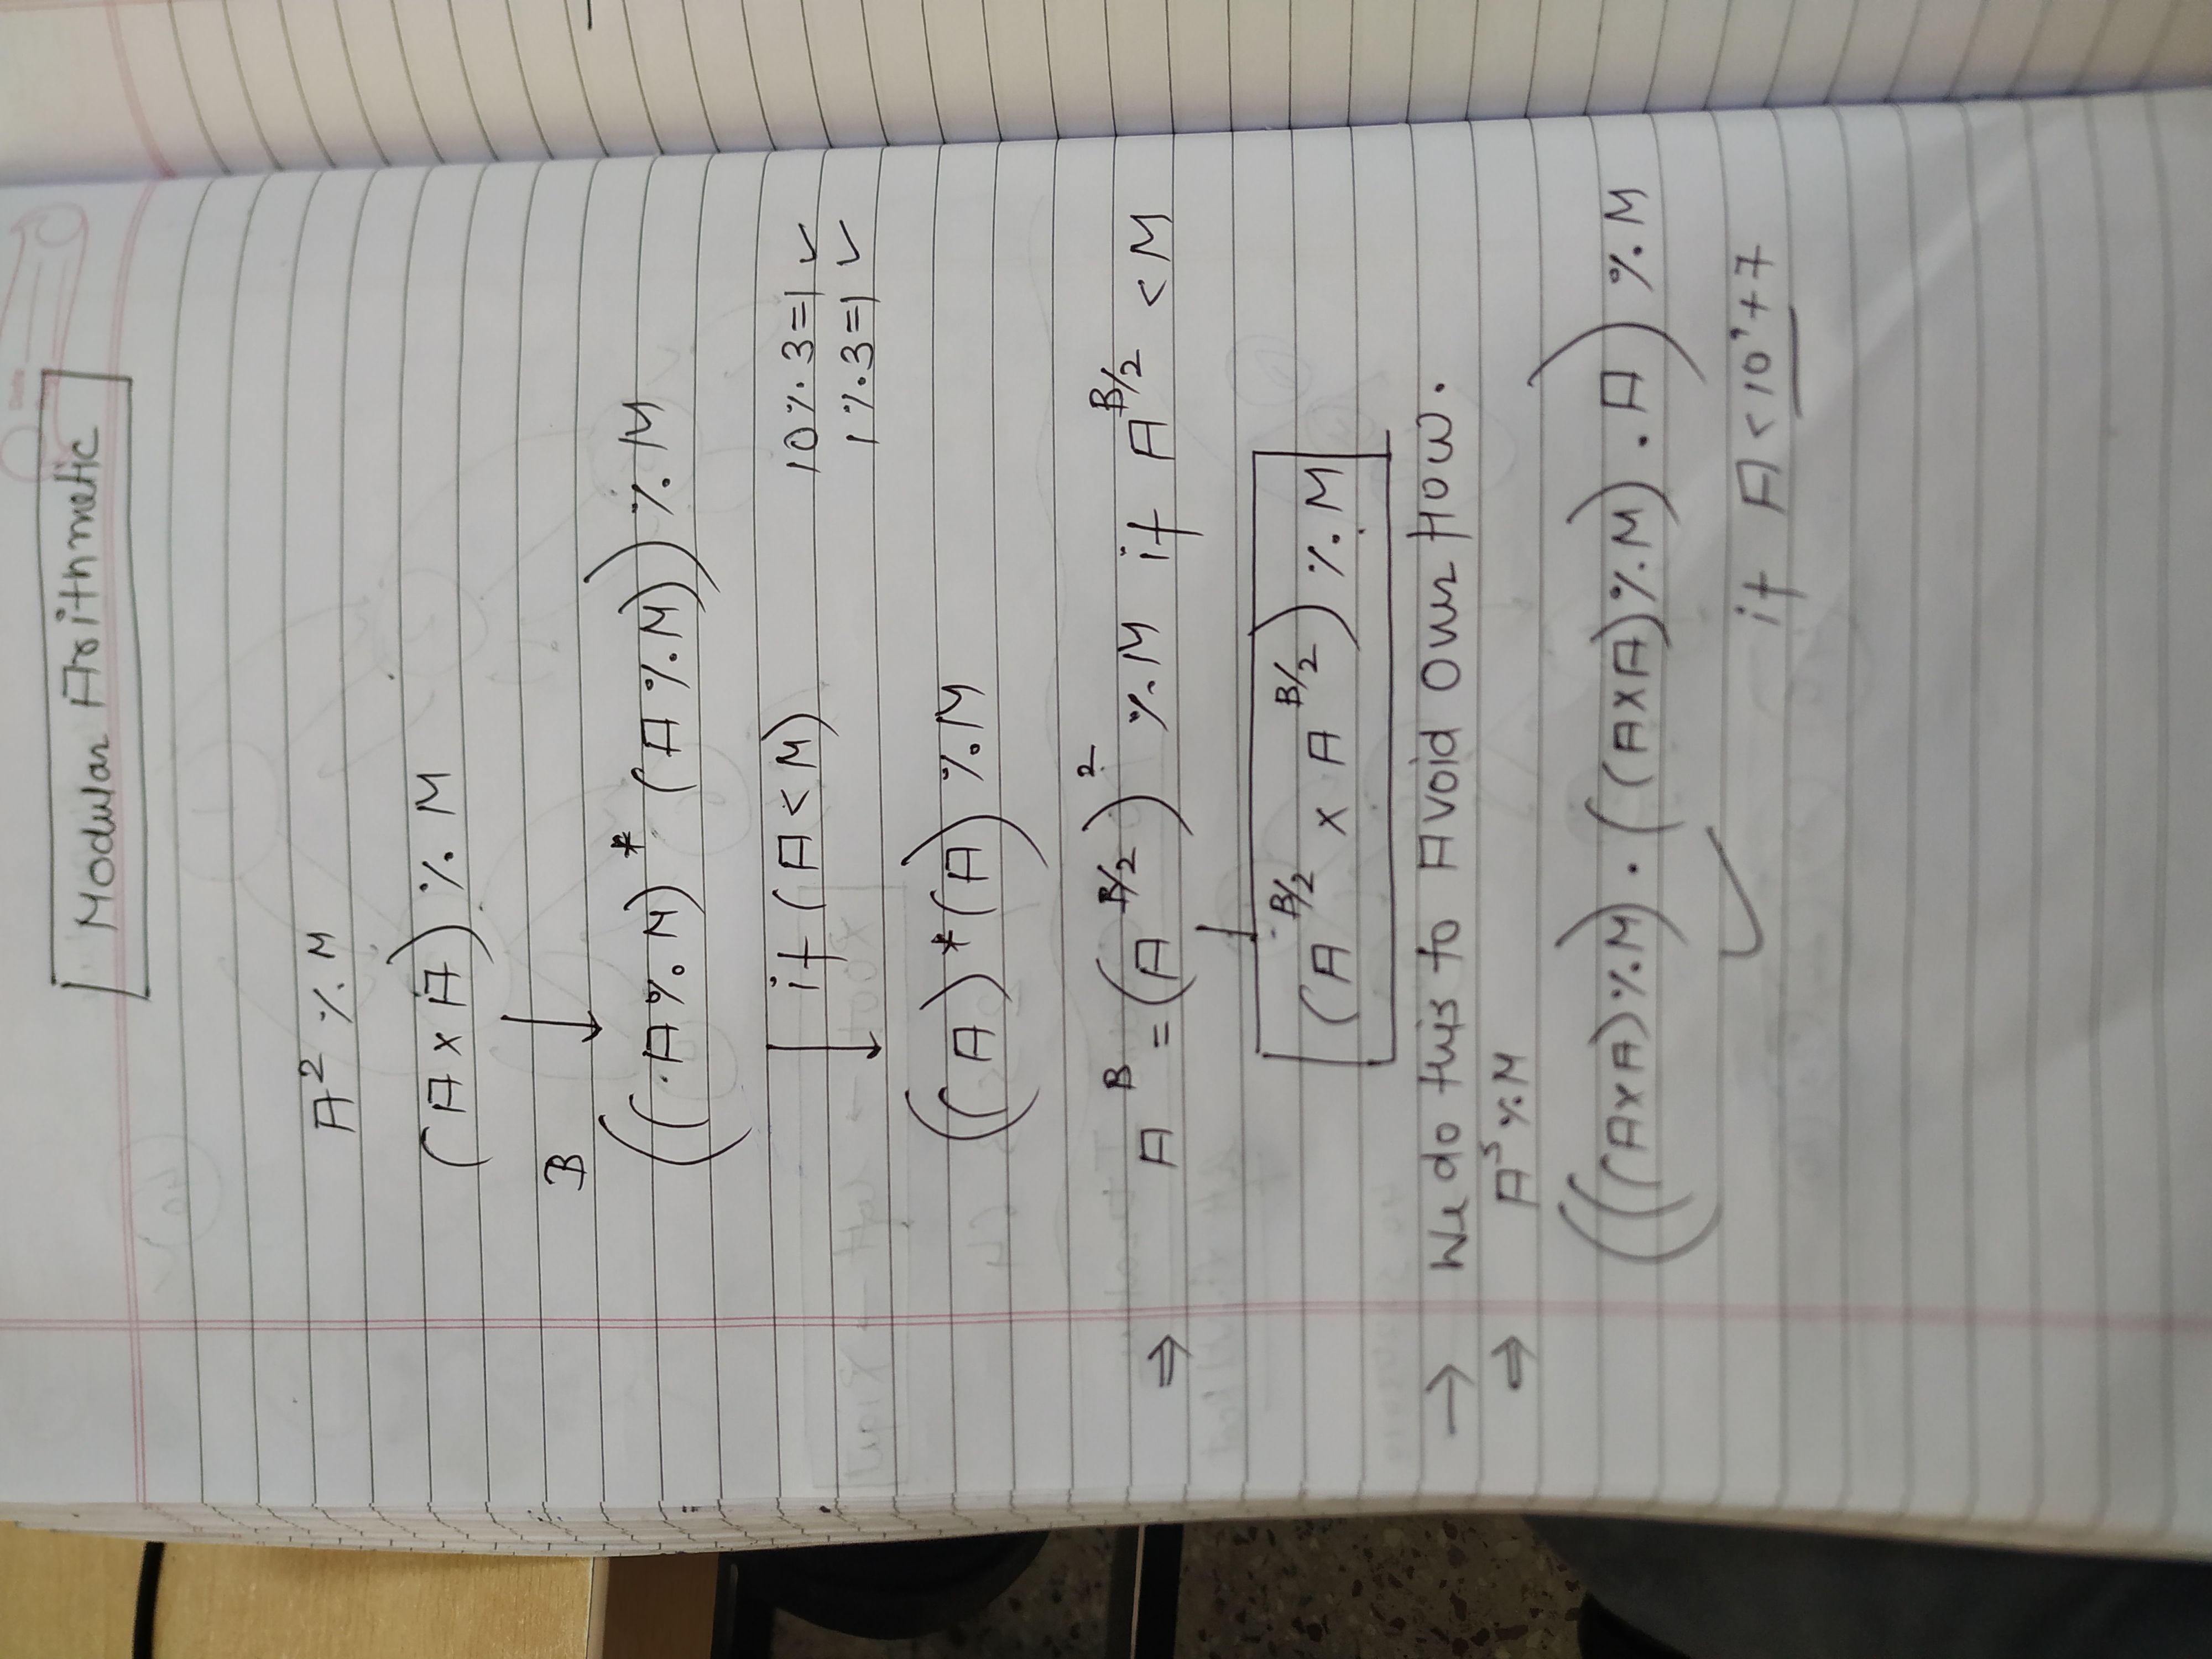 Modular Arithmetic
A² % M
(A × A) % M
B
((A % M) * (A % M)) % M
if (A < M)
10 % 3 = 1 ✓
1 % 3 = 1 ✓
((A) * (A) % M
⇒ A^B = (A^B/2)² % M if A^B/2 < M
(A^B/2 × A^B/2) % M
→ We do this to Avoid Over flow.
⇒ A⁵ % M
(((A×A) % M) . ((A×A) % M) . A) % M
✓
if A < 10⁹+7